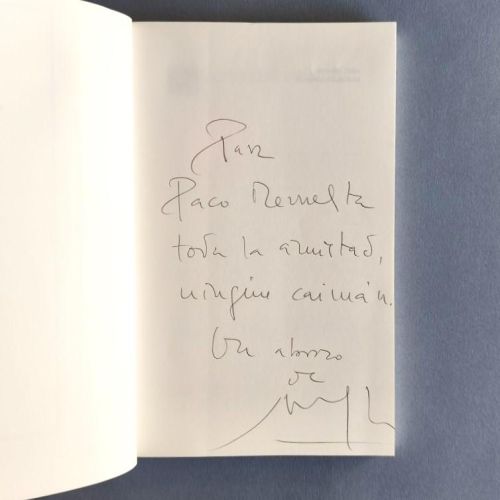 Para
Paco
toda la amistad,
ningún caimán.
Un abrazo
de